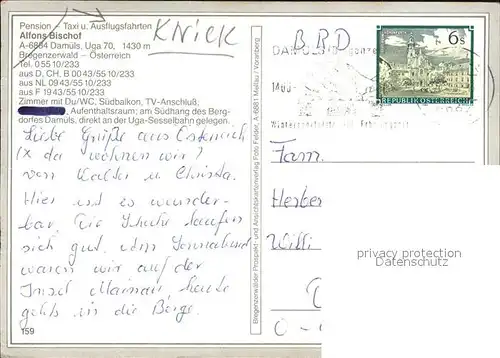 Pension – Taxi u. Ausflugsfahrten
Alfons Bischof
A-6884 Damüls, Uga 70, 1430 m
Bregenzerwald – Österreich
Tel. 0 55 10/233
aus D, CH, B 00 43/55 10/233
aus NL 09 43/55 10/233
aus F 19 43/55 10/233
Zimmer mit Du/WC, Südbalkon, TV-Anschluß,
Aufenthaltsraum; am Südhang des Berg-
dorfes Damüls, direkt an der Uga-Sesselbahn gelegen.
KNICK
Liebe Grüße aus Österreich
(x da wohnen wir)
von Walter u. Christa.
Hier ist es wunder-
bar. Die Schuhe laufen
sich gut. Am Sonnabend
waren wir auf der
Insel Mainau, heute
gehts in die Berge.
159
Bregenzerwälder Prospekt- und Ansichtskartenverlag Foto Felder, A-6881 Mellau / Vorarlberg
BRD
6 S
REPUBLIK ÖSTERREICH
DAMÜLS
1400
Fam.
Herber
Willi
O-
privacy protection
Datenschutz